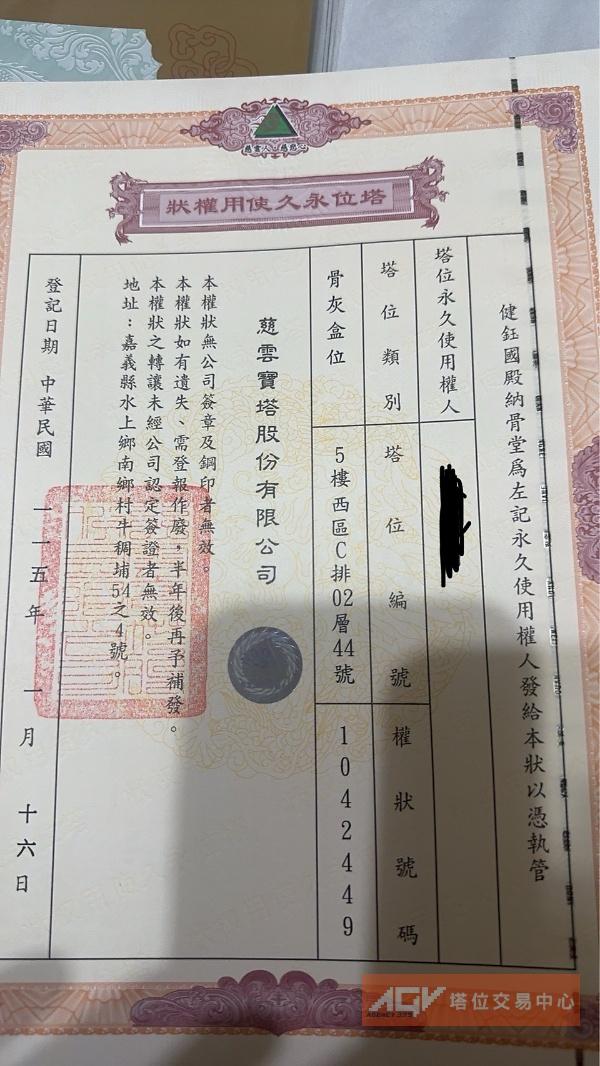 慈雲人山慈悲心
塔位永久使用權狀
健鈺國殿納骨堂為左記永久使用權人發給本狀以憑執管
塔位永久使用權人
塔位類別
塔位編號
權狀號碼
骨灰盒位
5樓西區C排02層44號
1042449
慈雲寶塔股份有限公司
本權狀無公司簽章及鋼印者無效。
本權狀如有遺失、需登報作廢,半年後再予補發。
本權狀之轉讓未經公司認定簽證者無效。
地址:嘉義縣水上鄉南鄉村牛稠埔54之4號。
登記日期 中華民國 一一五年 一月 十六日
AGV 塔位交易中心
AGENCY 333